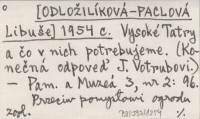 [ODLOŽILÍKOVÁ-PACLOVÁ
Libuše] 1954 c. Vysoké Tatry
a čo v nich potrebujeme. (Ko-
nečná odpoveď J. Votrubovi.)
— Pam. a Muzeá 3, nr 2: 96.
Przeciw pomysłowi ogrodu
zool.